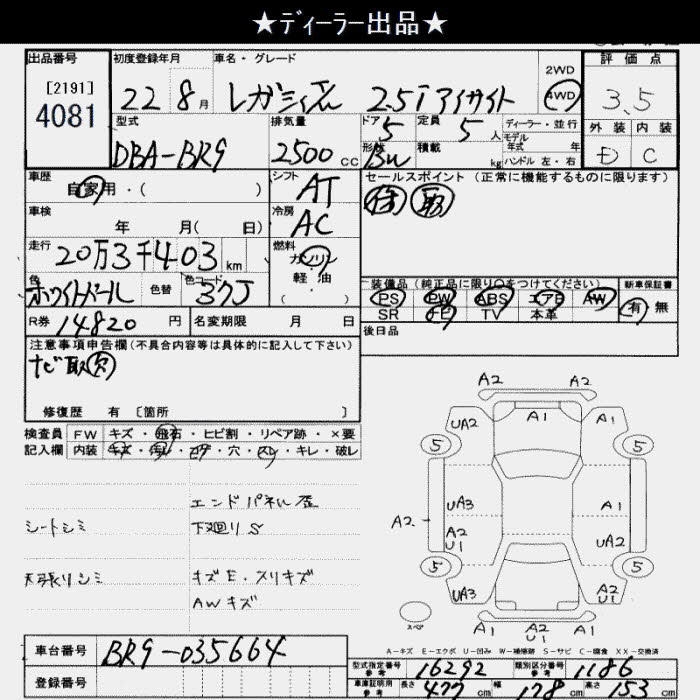 ★ディーラー出品★
出品番号 初度登録年月 車名・グレード 2WD 評価点
[2191] 4081 22 8月 レガシィ 2.5i アイサイト 4WD 3.5
型式 排気量 ドア 定員 ディーラー・並行 外装 内装
5 5人 モデル年式 年
DBA-BR9 2500cc 形状 BW 積載 kg ハンドル 左・右 D C
車歴 自家用・( ) シフト AT セールスポイント (正常に機能するものに限ります)
保 取
車検 年 月( 日) 冷房 AC
走行 20万3千403km 燃料 ガソリン
軽・油
色 ホワイトパール 色替 色コード 37J ・( )
装備品 (純正品に限り○をつけてください) 新車保証書
PS PW ABS エアB AW 有 無
SR ナビ TV 本革
R券 14820円 名変期限 月 日
後日品
注意事項申告欄(不具合内容等は具体的に記入して下さい)
ナビ取欠
修復歴 有 [箇所 ]
検査員 FW キズ・飛石・ヒビ割・リペア跡・×要
記入欄 内装 キズ・汚れ・コゲ・穴・スレ・キレ・破レ
エンドパネル歪
シートシミ 下廻りS
天張りシミ キズE・スリキズ
AWキズ
A2 A2
UA2 A1 A1
5 5
UA3 A1
A2 A2 U1 UA2
5 5
UA3 A2 U1
スペア A1 A2 U1 A1
A-キズ E-エクボ U-凹み W-補修跡 S-サビ C-腐食 XX-交換済
車台番号 BR9-035664
型式指定番号 参考 16292 類別区分番号 参考 1186
登録番号
車庫証明用 参考 長さ 477cm 幅 178cm 高さ 153cm